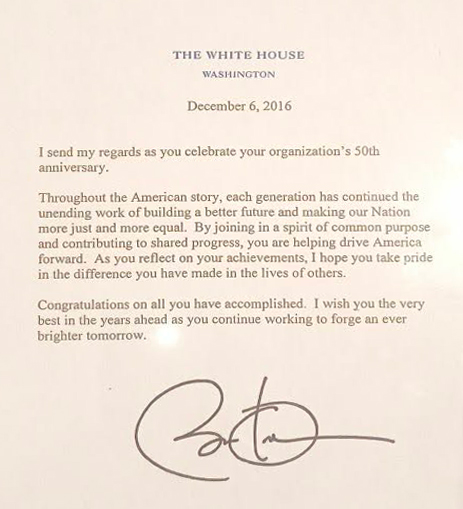 THE WHITE HOUSE
WASHINGTON
December 6, 2016
I send my regards as you celebrate your organization's 50th
anniversary.
Throughout the American story, each generation has continued the
unending work of building a better future and making our Nation
more just and more equal.  By joining in a spirit of common purpose
and contributing to shared progress, you are helping drive America
forward.  As you reflect on your achievements, I hope you take pride
in the difference you have made in the lives of others.
Congratulations on all you have accomplished.  I wish you the very
best in the years ahead as you continue working to forge an ever
brighter tomorrow.